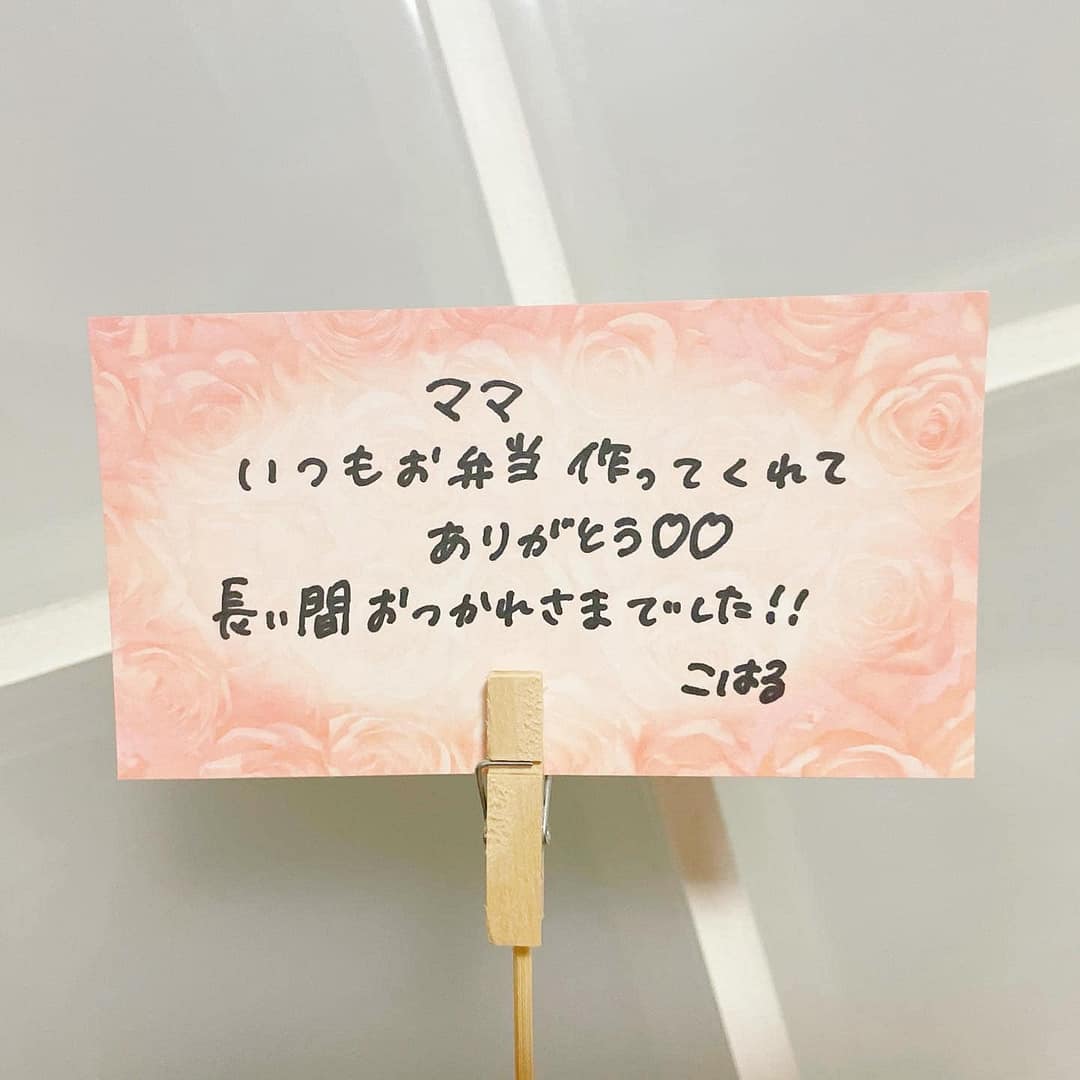 ママ
いつもお弁当 作ってくれて
ありがとう♡♡
長い間おつかれさまでした!!
こはる